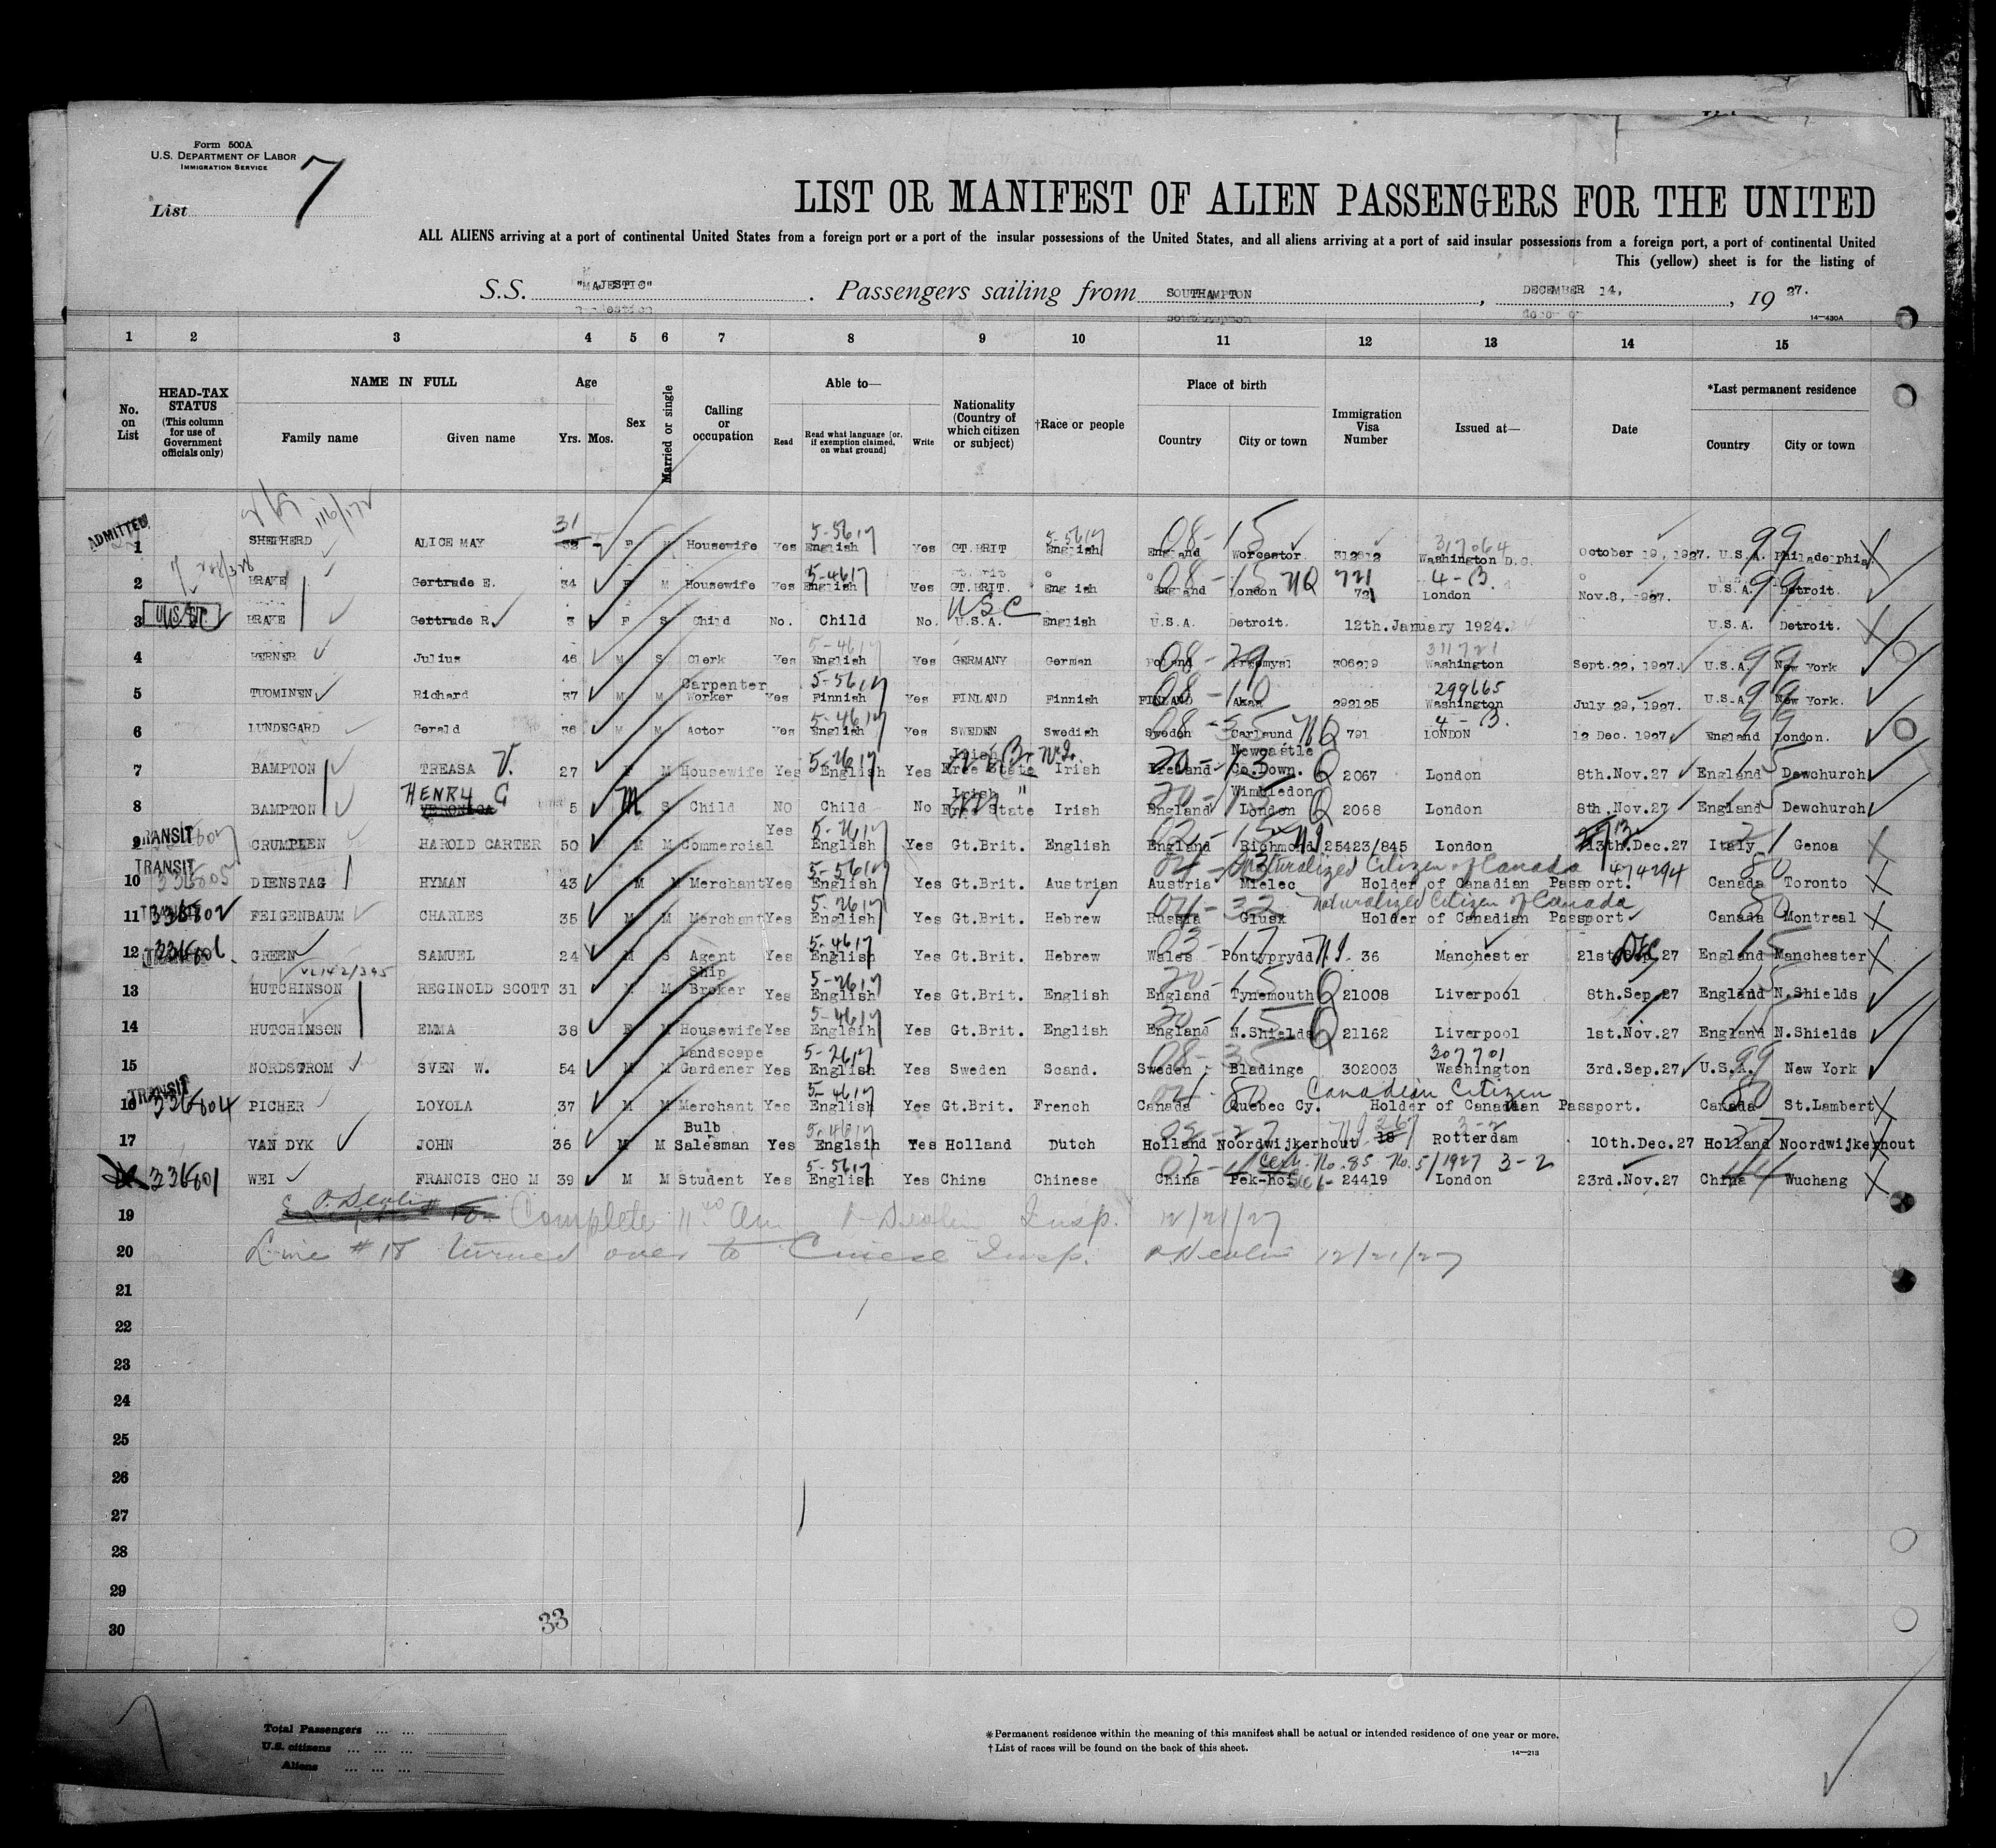 Form 500A
U.S. DEPARTMENT OF LABOR
IMMIGRATION SERVICE
List 7
LIST OR MANIFEST OF ALIEN PASSENGERS FOR THE UNITED
ALL ALIENS arriving at a port of continental United States from a foreign port or a port of the insular possessions of the United States, and all aliens arriving at a port of said insular possessions from a foreign port, a port of continental United
This (yellow) sheet is for the listing of
S.S. "MAJESTIC". Passengers sailing from SOUTHAMPTON, DECEMBER 14, 1927.
14—430A
1 2 3 4 5 6 7 8 9 10 11 12 13 14 15
No. on List
HEAD-TAX STATUS (This column for use of Government officials only)
NAME IN FULL Family name Given name
Age Yrs. Mos.
Sex
Married or single
Calling or occupation
Able to— Read Read what language [or, if exemption claimed, on what ground] Write
Nationality (Country of which citizen or subject)
†Race or people
Place of birth Country City or town
Immigration Visa Number
Issued at—
Date
*Last permanent residence Country City or town
ADMITTED 1 SHEPHERD ALICE MAY 31 32 F M Housewife Yes 5-5617 English Yes GT.BRIT 5-5617 English 08-15 England Worcester 312912 317064 Washington D.C. October 19, 1927. U.S.A. 99 Philadelphia
2 BRAKE Gertrude E. 34 F M Housewife Yes 5-4617 English Yes GT.BRIT. Eng ish 08-15 England London NQ 721 4-B. London Nov.8, 1927. U.S.A. 99 Detroit.
3 BRAKE Gertrude R. 3 F S Child No. Child No. USC U.S.A. English U.S.A. Detroit. 12th.January 1924. U.S.A. Detroit.
4 BERNER Julius 46 M S Clerk Yes 5-4617 English Yes GERMANY German 08-29 Poland Przemysl 306219 311721 Washington Sept.22, 1927. U.S.A. 99 New York
5 TUOMINEN Richard 37 M M Carpenter Worker Yes 5-5617 Finnish Yes FINLAND Finnish 08-10 FINLAND Akaa 292125 299665 Washington July 29, 1927. U.S.A. 99 New York.
6 LUNDEGARD Gerald 36 M M Actor Yes 5-4617 English Yes SWEDEN Swedish 08-35 Sweden Carlsund NQ 791 4-B. LONDON 12 Dec. 1927 England 99 London.
7 BAMPTON TREASA V. 27 F M Housewife Yes 5-2617 English Yes Irish Free State Irish 20-13 Ireland Newcastle Co.Down. Q 2067 London 8th.Nov.27 England 15 Dewchurch
8 BAMPTON HENRY G VERONICA 5 M S Child NO Child No Irish Free State Irish 20-15 England Wimbledon London Q 2068 London 8th.Nov.27 England 15 Dewchurch
TRANSIT 9 CRUMPLEN HAROLD CARTER 50 M M Commercial Yes 5-2617 English Yes Gt.Brit. English 02-15 England Richmond 25423/845 London 13th.Dec.27 Italy 21 Genoa
TRANSIT 336805 10 DIENSTAG HYMAN 43 M M Merchant Yes 5-5617 English Yes Gt.Brit. Austrian Austria Mielec Naturalized Citizen of Canada 474294 Holder of Canadian Passport. Canada 80 Toronto
11 336802 FEIGENBAUM CHARLES 35 M M Merchant Yes 5-2617 English Yes Gt.Brit. Hebrew 04-32 Russia Glusk Naturalized Citizen of Canada Holder of Canadian Passport Canada 80 Montreal
12 336806 GREEN SAMUEL 24 M S Agent Yes 5-4617 English Yes Gt.Brit. Hebrew 03-17 Wales Pontyprydd 36 Manchester 21st Dec 27 England 15 Manchester
13 HUTCHINSON REGINOLD SCOTT 31 M M Ship Broker Yes 5-2617 English Yes Gt.Brit. English 20-15 England Tynemouth Q 21008 Liverpool 8th.Sep.27 England 15 N.Shields
14 HUTCHINSON EMMA 38 F M Housewife Yes 5-4617 Englsih Yes Gt.Brit. English 20-15 England N.Shields Q 21162 Liverpool 1st.Nov.27 England 15 N.Shields
15 NORDSTROM SVEN W. 54 M M Landscape Gardener Yes 5-2617 English Yes Sweden Scand. 08-35 Sweden Bladinge 302003 307701 Washington 3rd.Sep.27 U.S.A. 99 New York
TRANSIT 16 336804 PICHER LOYOLA 37 M M Merchant Yes 5-4617 English Yes Gt.Brit. French 04-80 Canada Quebec Cy. Canadian Citizen Holder of Canadian Passport. Canada 80 St.Lambert
17 VAN DYK JOHN 36 M M Bulb Salesman Yes 5-4617 Englsih Yes Holland Dutch 02-27 Holland Noordwijkerhout 18 3-2 Rotterdam 10th.Dec.27 Holland 27 Noordwijkerhout
336801 WEI FRANCIS CHO M 39 M M Student Yes 5-5617 English Yes China Chinese China Pek-hoi Cert. No. 85 No. 5/1927 3-2 24419 London 23rd.Nov.27 China 44 Wuchang
19 Complete 11 40 am P Devlin Insp. 12/21/27
20 Line #18 turned over to Cinese Insp. P. Devlin 12/21/27
21
22
23
24
25
26
27
28
29
30
33
Total Passengers ... ...
U.S. citizens ... ... ...
Aliens ... ... ...
*Permanent residence within the meaning of this manifest shall be actual or intended residence of one year or more.
†List of races will be found on the back of this sheet.
14—213